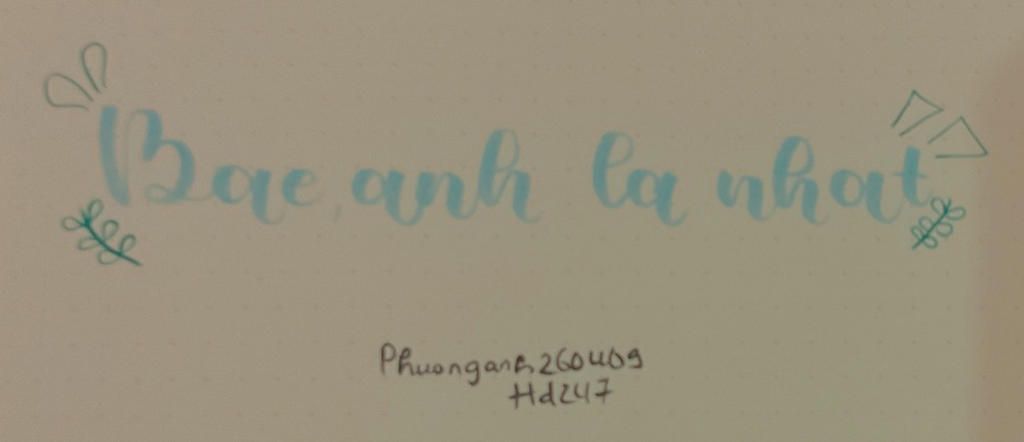 Bae, anh la nhat
Phuonganh260409
Hd247